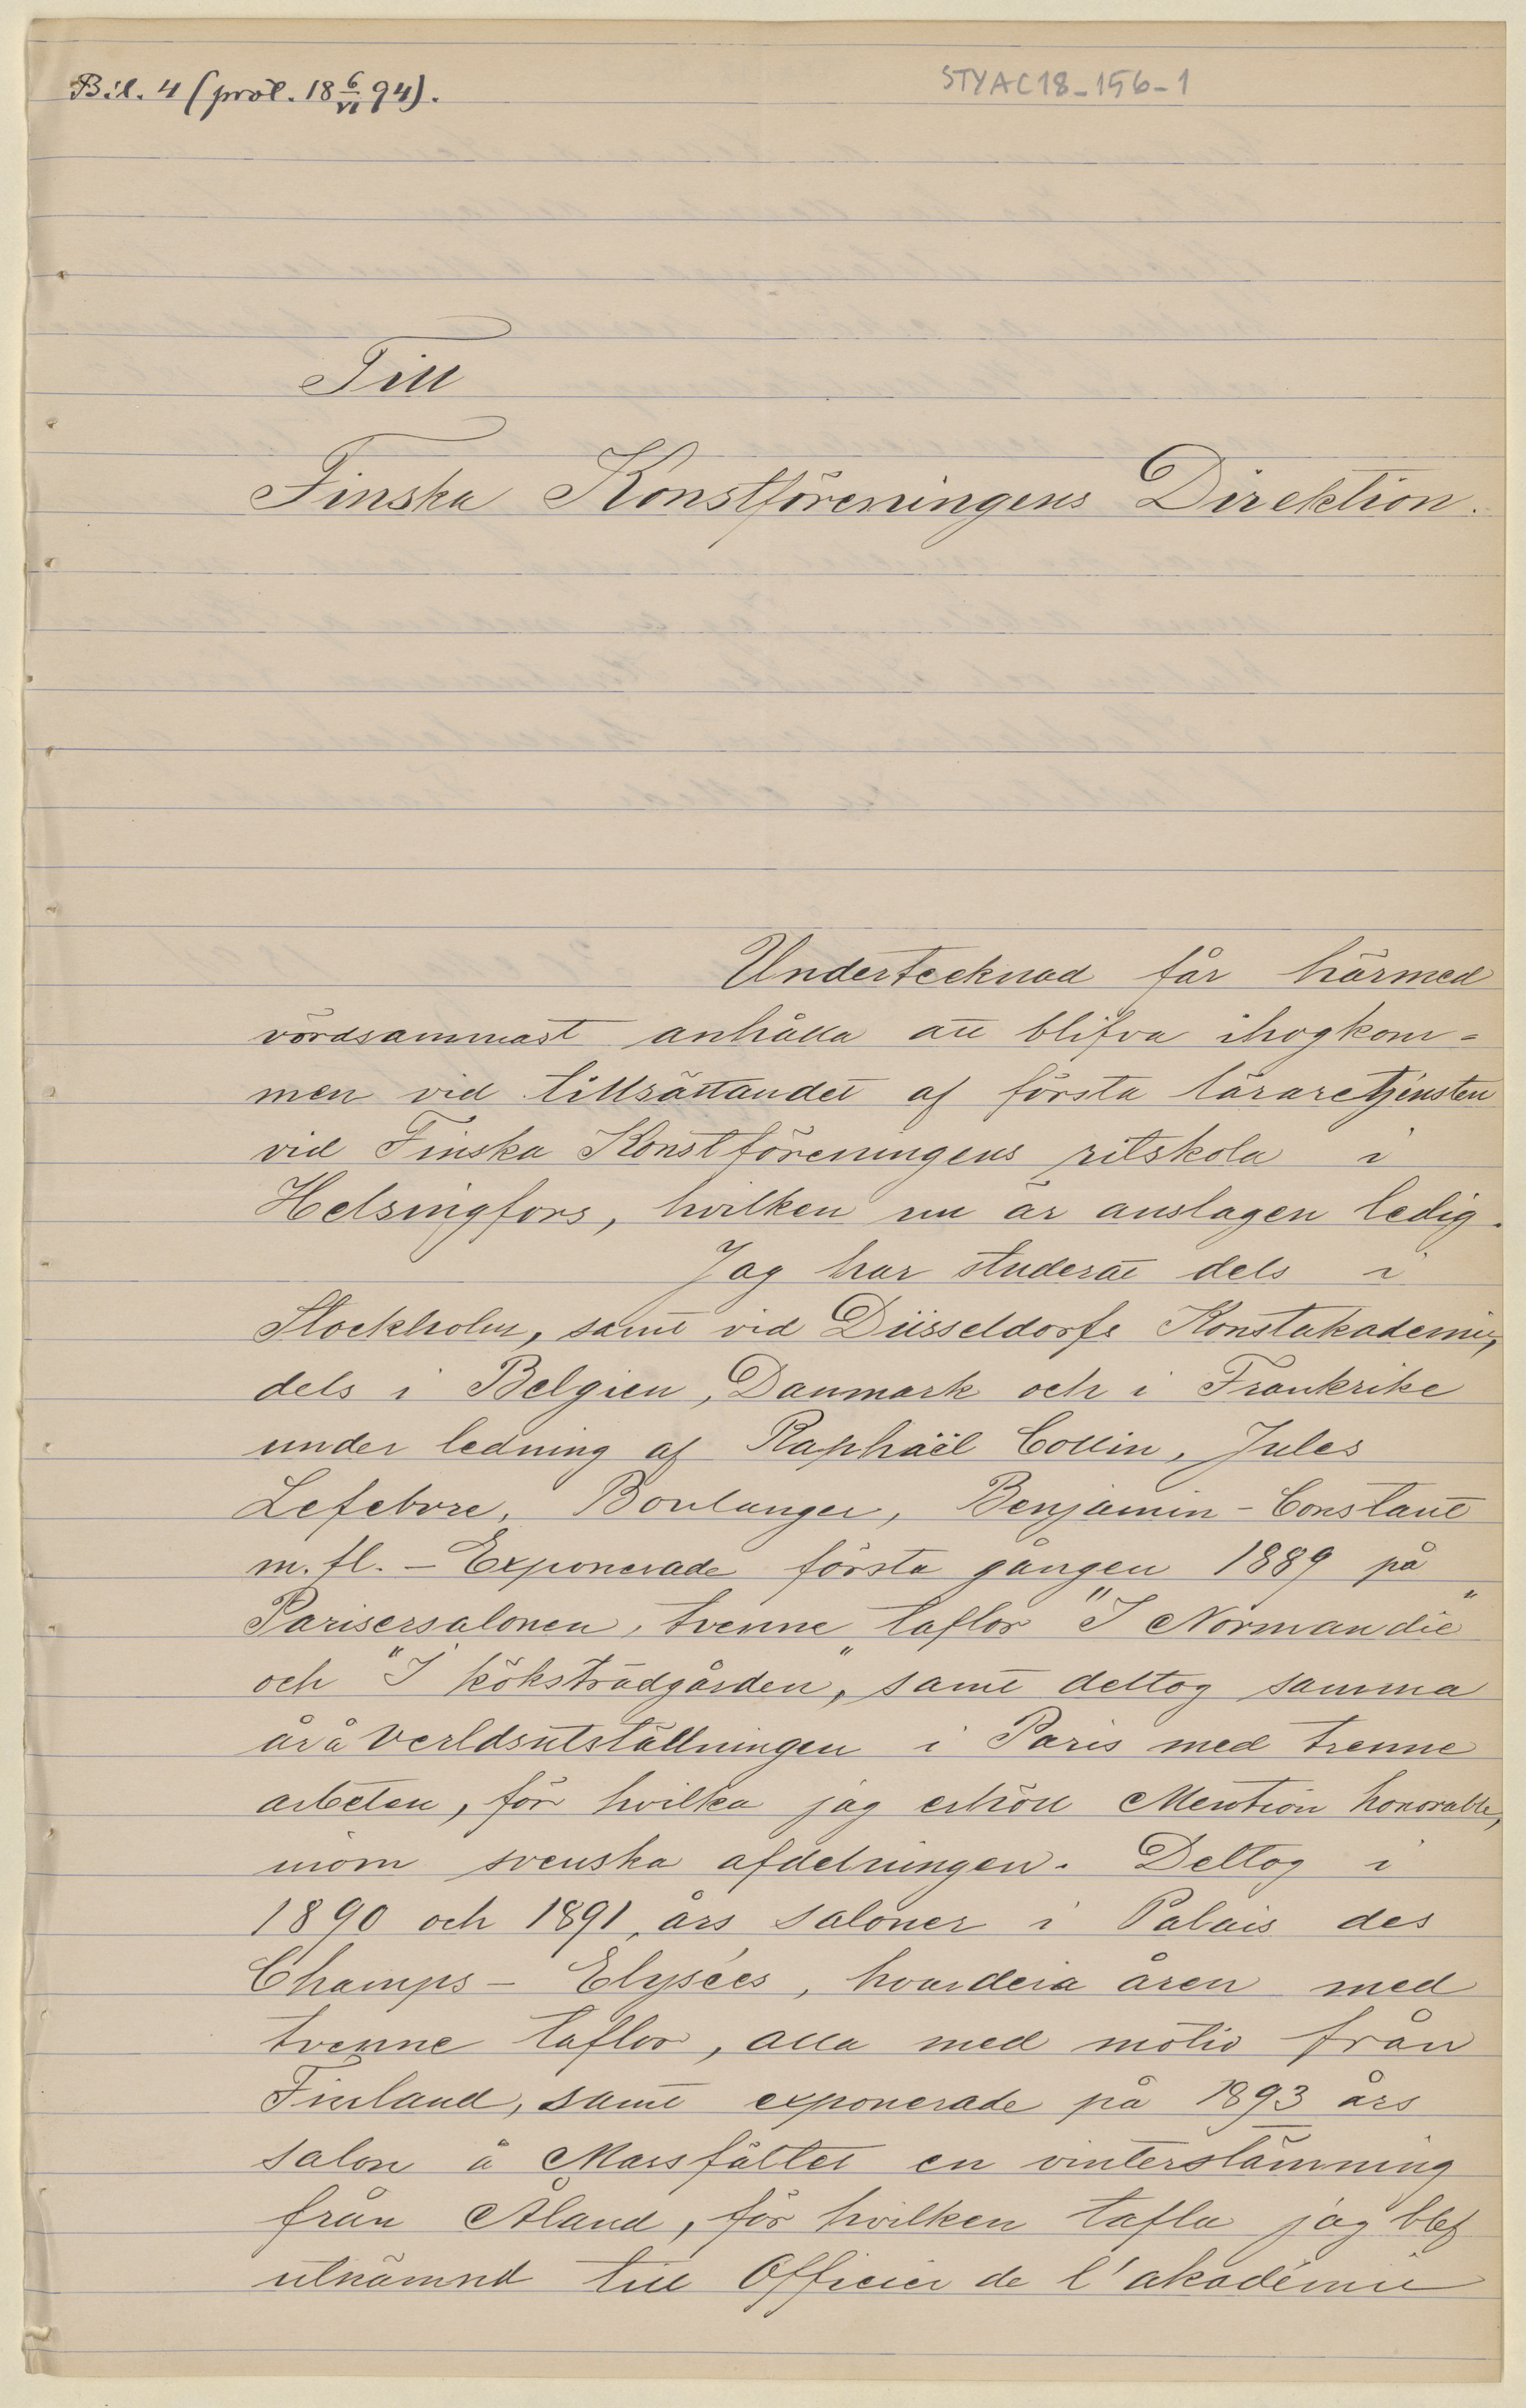 Bil. 4 (prot. 18 6/VI 94).
STYAC18-156-1
Till
Finska Konstföreningens Direktion.
Undertecknad får härmed
vördsammast anhålla att blifva ihogkom-
men vid tillsättandet af första läraretjensten
vid Finska Konstföreningens ritskola i
Helsingfors, hvilken nu är anslagen ledig.
Jag har studerat dels i
Stockholm, samt vid Düsseldorfs Konstakademie,
dels i Belgien, Danmark och i Frankrike
under ledning af Raphäel Collin, Jules
Lefebvre, Boulanger, Benjamin-Constant
m. fl. - Exponerade första gången 1889 på
Parisersalonen, tvenne taflor "I Normandie"
och "I köksträdgården", samt deltog samma
år å verldsutställningen i Paris med trenne
arbeten, för hvilka jag erhöll Mention honorable,
inom svenska afdelningen. Deltog i
1890 och 1891, års saloner i Palais des
Champs-Elysées, hvardera åren med
tvenne taflor, alla med motiv från
Finland, samt exponerade på 1893 års
salon å Marsfältet en vinterstämning
från Åland, för hvilken tafla jag blef
utnämnd till Officier de l'akadémie